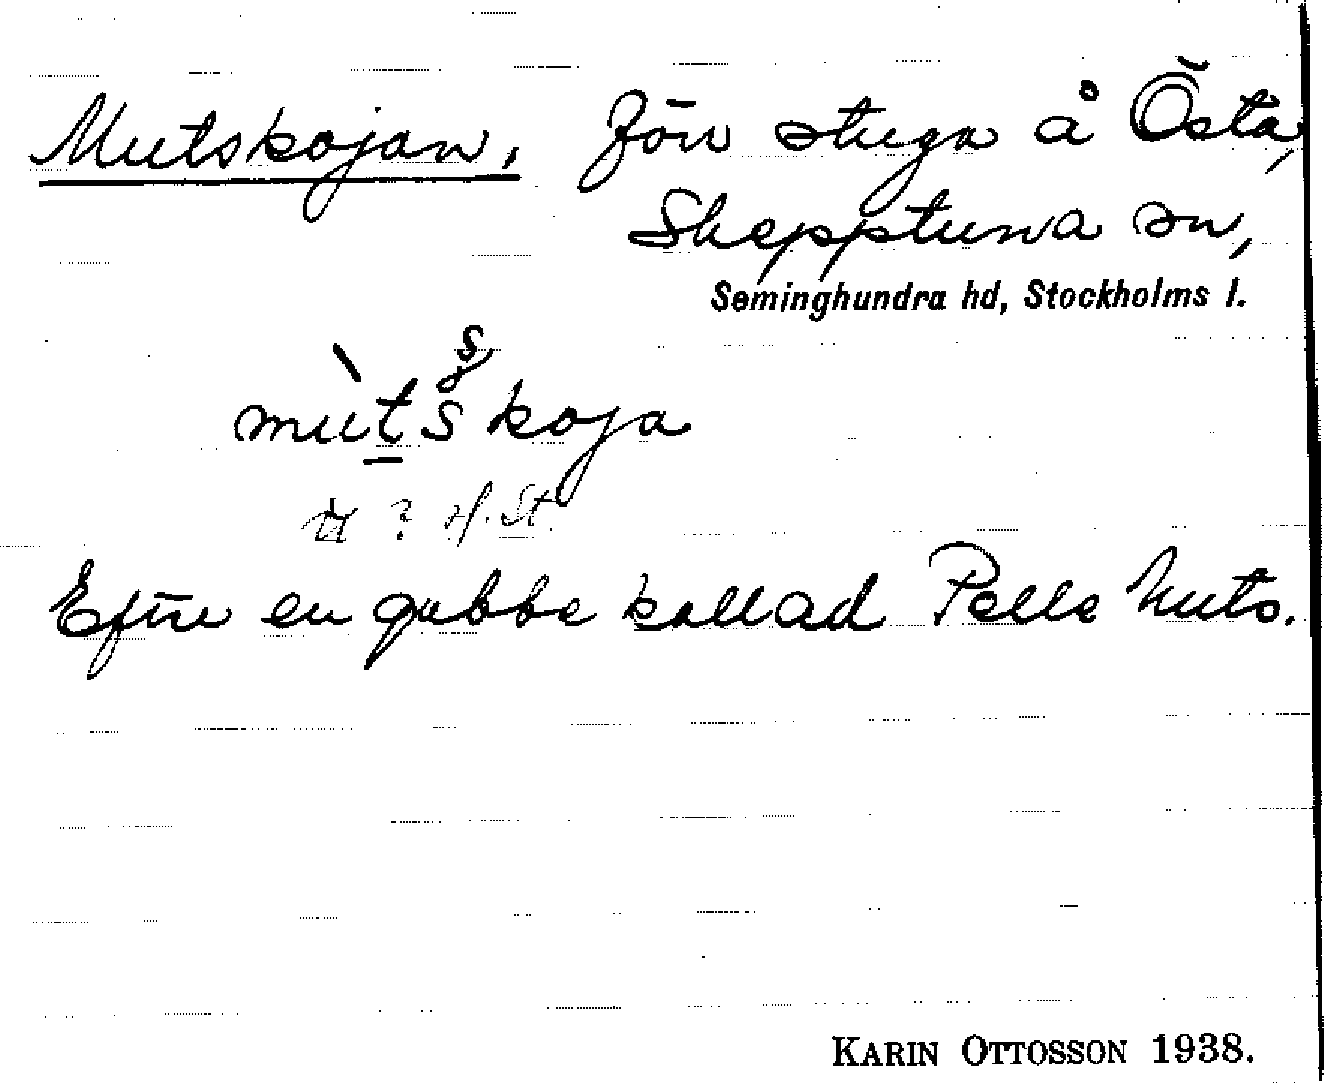 Mutskojan. Förr stuga å Östa,
Skepptuna sn,
Seminghundra hd, Stockholms l.
mùtskoja
? H. St.
Efter en gubbe kallad Pelle Muts.
KARIN OTTOSSON 1938.